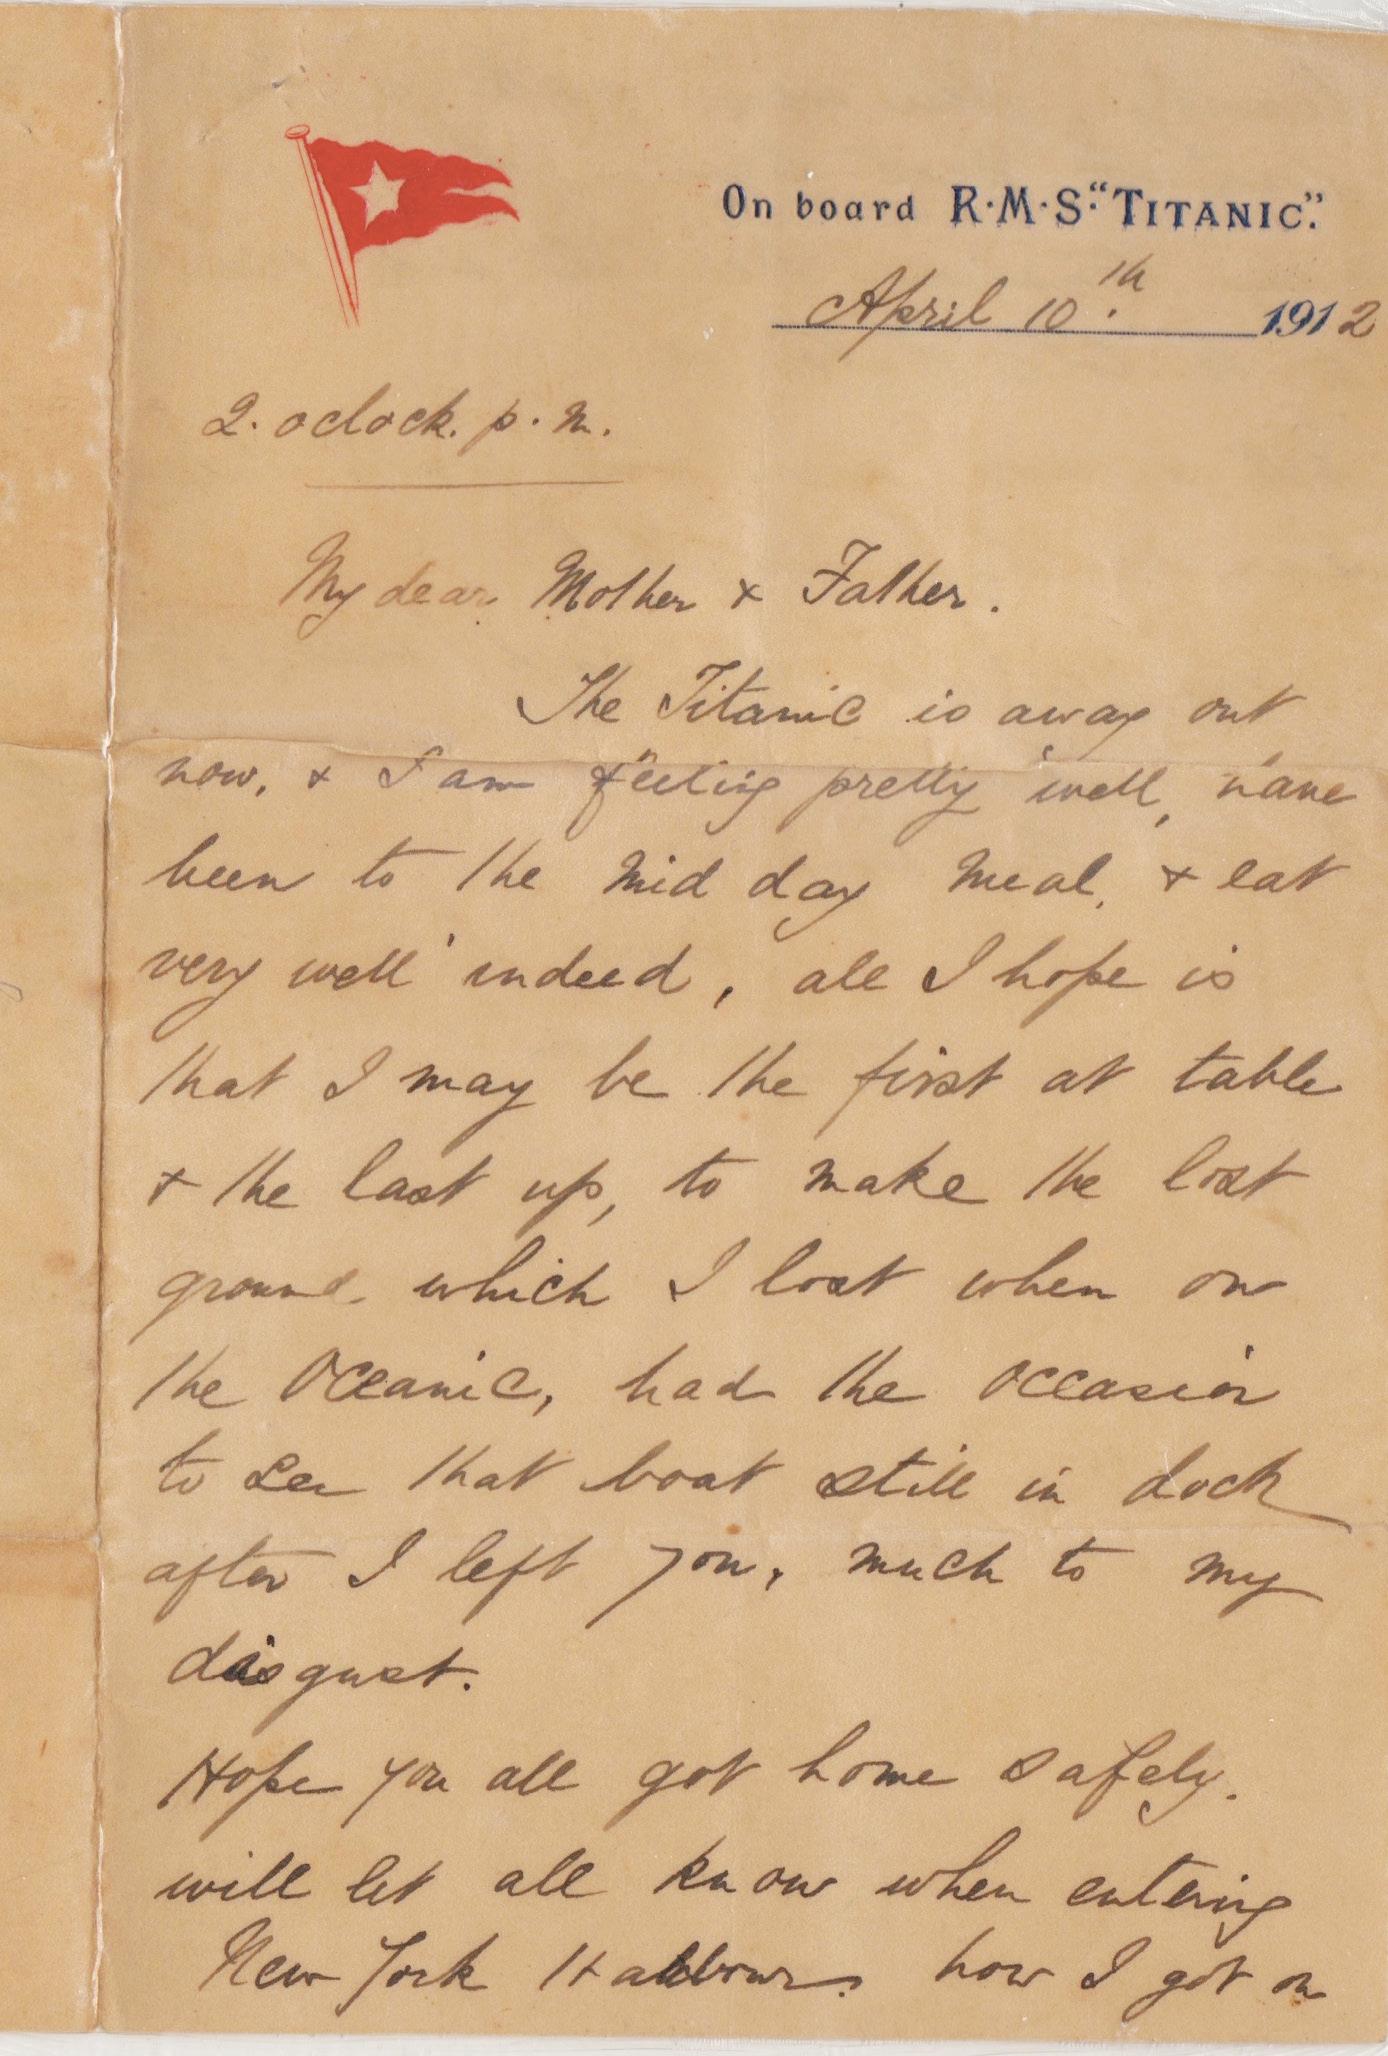 On board R·M·S. "TITANIC".
April 10th. 1912
2. oclock. p.m.
My dear Mother & Father.
The Titanic is away out
now, & I am feeling pretty well, have
been to the mid day meal, & eat
very well indeed, all I hope is
that I may be the first at table
& the last up, to make the lost
ground which I lost when on
the Oceanic, had the occasion
to see that boat still in dock
after I left you, much to my
disgust.
Hope you all got home safely.
will let all know when entering
New York Habbour. how I got on